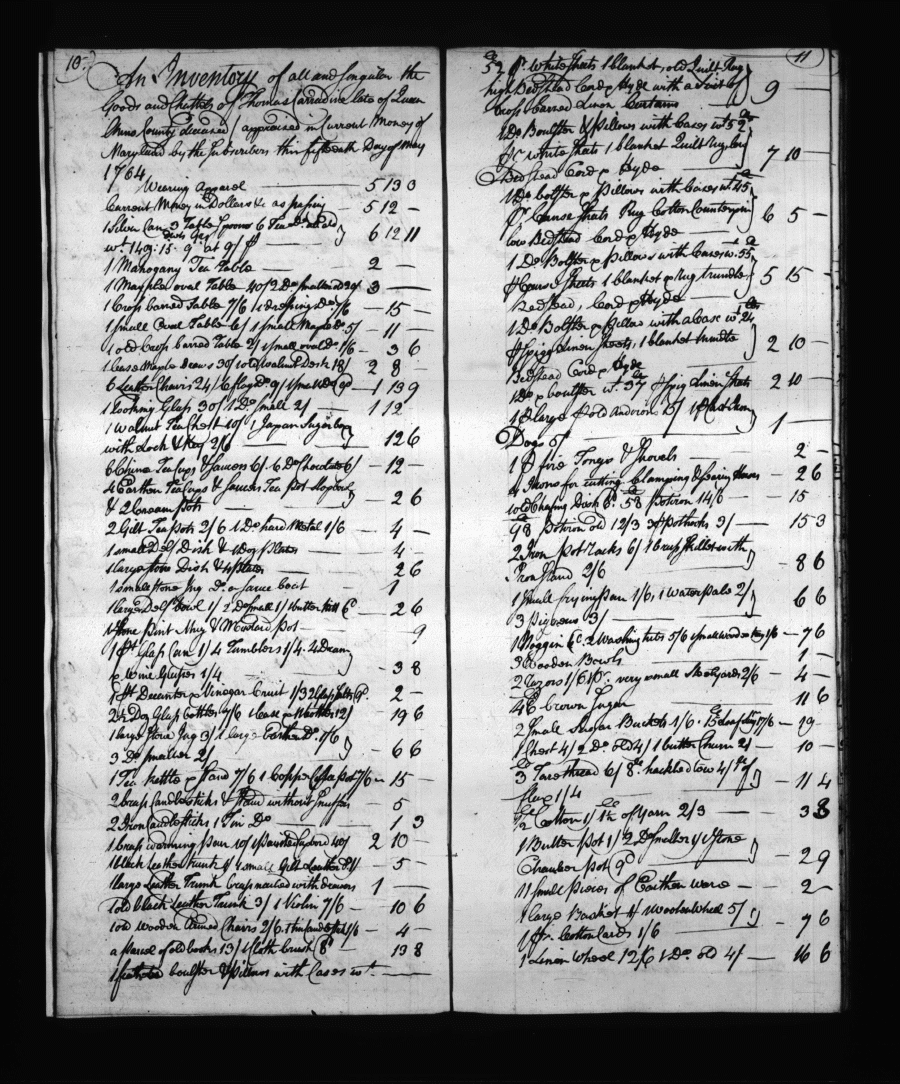 10
An Inventory of all and Singular the
Goods and Chattels of Thomas late of Queen
Anns County deceased appraised in Current Money of
Maryland by the Subscribers this fifteenth Day of May
1764
Wearing Apparel 5 13 0
Current Money in Dollars &c as passing 5 12 —
1 Silver Can 3 Table Spoons 6 Tea
wt. 14 oz: 15 at 9/ 6 12 11
1 Mahogany Tea Table — 2 —
1 Mapple oval Table 40/ 2 Do smaller 3 —
1 Cross barred Table 7/6 1 dressing Do 7/6 — 15 —
1 small Oval Table 6/ 1 small Maple Do 5/ — 11 —
1 old Cross barred Table 2/ 1 small oval Do 1/6 — 3 6
1 Case Maple Draws 30/ 1 old Walnut Desk 18/ 2 8 —
6 Leather Chairs 24/ 1 small Do 9d — 1 13 9
1 Looking Glass 30/ 1 Do small 2/ — 1 12
1 Walnut Tea Chest 10/ 1 Japan Sugar box
with Lock & Key 2/6 — 12 6
6 China Tea Cups & Saucers 6/ 6 Do Chocolate 6/ — 12 —
4 Earthen Tea Cups & Saucers Tea pot Slop bowl
& 2 Cream pots — 2 6
2 Gilt Tea pots 2/6 1 Do hard Metal 1/6 — 4 —
1 small Delf Dish & 1 Doz plates — 4 —
1 large stone Dish & 4 plates — 2 6
1 small stone Jug Do a sauce boat — 1
1 large Delf bowl 1/ 2 Do small 1/ 1 butter 6d — 2 6
1 stone pint Mug & Mustard pot — 9
1 pt Glass Can 1/4 Tumblers 1/4 4 Dram
& Wine Glasses 1/4 — 3 8
1 pt Decanter & Vinegar Cruit 1/3 2 Glass Salts 9d 2 —
2½ Doz Glass bottles 7/6 1 Case & bottles 12/ 19 6
1 large stone Jug 3/ 1 large Earthen Do 1/6
3 Do smaller 2/ — 6 6
1 Tea kettle & stand 7/6 1 Copper Coffee pot 7/6 — 15 —
2 brass Candlesticks & stand without snuffers — 5
2 Iron Candlesticks 1 Tin Do — 1 3
1 brass warming pan 10/ 40/ 2 10 —
1 black Leather trunk 4/ 4 small Gilt Leather Do 1/ — 5 —
1 large Leather Trunk brass nailed with drawers 1 —
1 old black Leather Trunk 3/ 1 Violin 7/6 — 10 6
1 old wooden Armed Chairs 2/6 1/6 — 4 —
a parcel of old books 13/ 1 Cloth brush 8d — 13 8
1 feather boulster & pillows with Cases wt. —
11
52 pr. White Sheets 1 blanket, old Quilt Rug
high Bedstead Cord & Hyde with a Suit of
Cross barred Linen Curtains 9 —
1 Do Boulster & pillows with Cases wt 52
pr White Sheets 1 blanket Quilt Rug
Bedstead Cord & Hyde 7 10 —
1 Do bolster & pillows with Cases wt. 45
Sheets Rug Cotton Counterpin
low Bedstead Cord & Hyde 6 5 —
1 Do Bolster & pillows with Cases wt. 55
Coarse Sheets 1 blanket & rug trundle
Bedstead, Cord & Hyde 5 15 —
1 Do Bolster & Pillow with a Case wt. 24
Linen Sheets, 1 blanket trundle
Bedstead Cord & Hyde 2 10 —
1 Do & boulster wt. 37 Linen Sheets 2 10
1 pr large pr old Andiron 15/ 1 pr Cast Iron
Dogs 5/ 1 —
1 pr fire Tongs & Shovels — 2 —
4 Irons for cutting Clamping & Searing Horses — 2 6
1 old Chafing Dish 6d. 58 Potiron 14/6 — 15
48 Potiron old 12/3 3 pr Pothooks 3/ — 15 3
2 Iron Pot Racks 6/ 1 brass skillet with
Iron stand 2/6 — 8 6
1 small frying pan 1/6, 1 Water pale 2/
3 3/ 6 6
1 Noggin 6d 2 Washing tubs 5/6 1 small wooden 1/6 — 7 6
3 Wooden Bowls — 1 —
2 Razors 1/6 1 pr very small Steelyards 2/6 — 4 —
brown Sugar — 11 6
2 small Sugar Buckets 1/6 17/6 — 19 —
1 Chest 4/ 2 Do old 4/ 1 butter Churn 2/ — 10 —
3 Tare thread 6/ 8 lb hackled tow 4/
flax 1/4 — 11 4
Cotton 1/ of Yarn 2/3 — 3 3
1 Butter pot 1/ 2 Do smaller 1/ 1 stone
Chamber pot 9d — 2 9
11 small pieces of Earthen Ware — 2 —
1 large Basket Woolen Wheel 5/
1 pr. Cotton Cards 1/6 7 6
1 Linen Wheel 12/6 1 Do old 4/ — 16 6